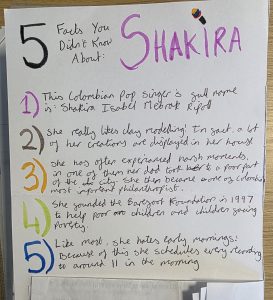 5 Facts You
Didn't Know
About:
SHAKIRA
1) This Colombian Pop Singer's full name
is: Shakira Isabel Mebrak Ripoll
2) She really likes clay modelling! In fact, a lot
of her creations are displayed in her house
3) She has often experienced harsh moments,
in one of them her dad took her to a poor part
of the city. She then became one of Colombia's
most important philanthropist.
4) She founded the Barefoot Foundation in 1997
to help poor children and children facing
Poverty.
5) Like most, she hates early mornings:
Because of this she schedules every recording
to around 11 in the morning